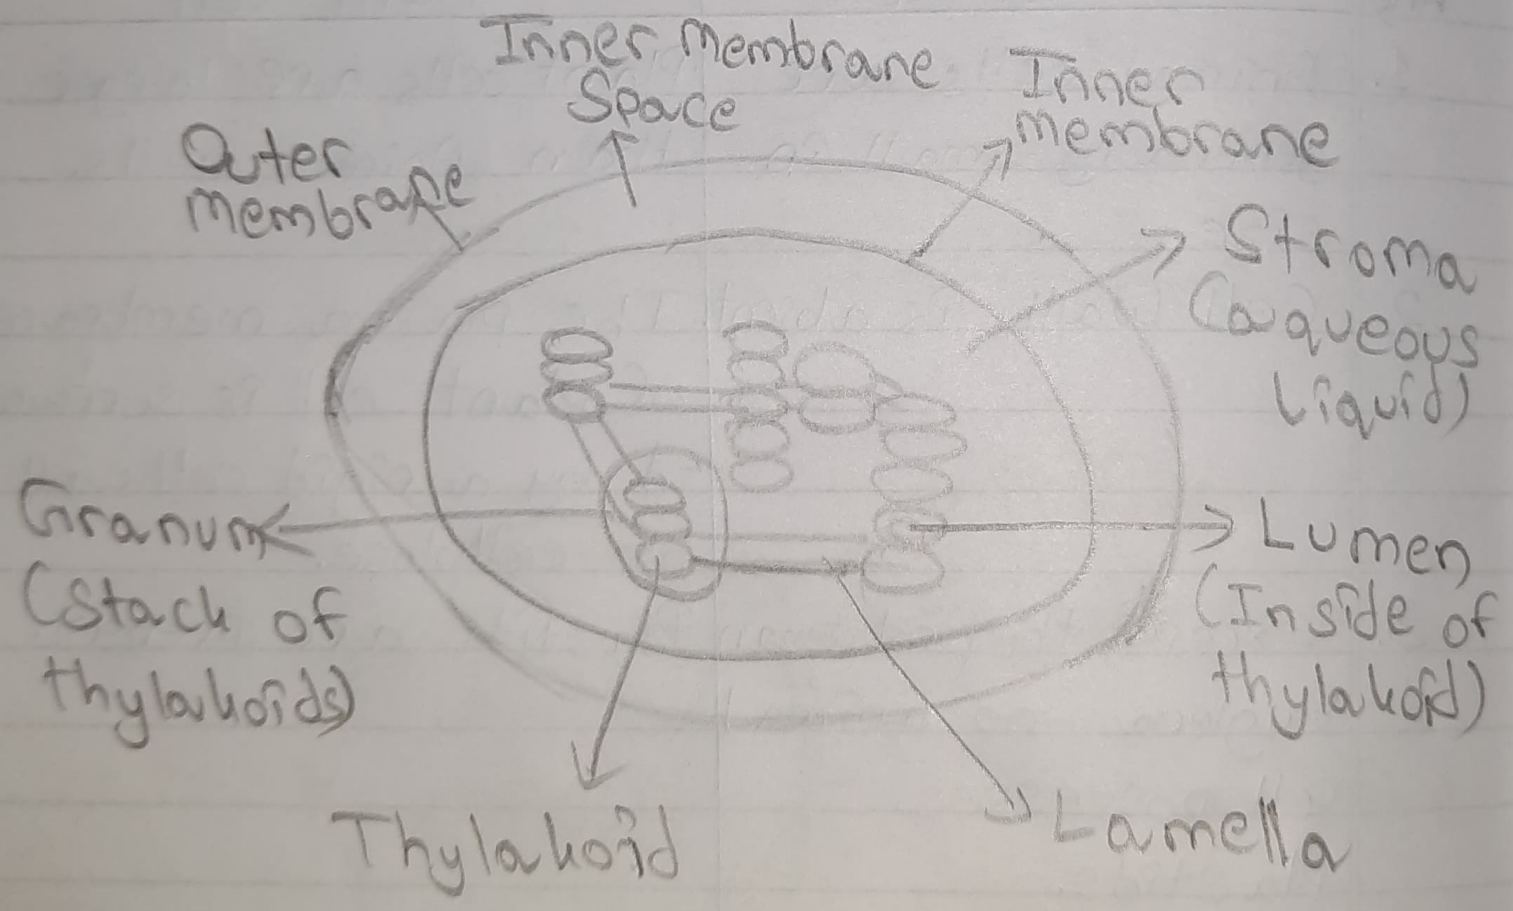 Inner Membrane
Space
Inner
Membrane
Outer
Membrane
Stroma
(aqueous
Liquid)
Granum
(Stack of
thylakoids)
Lumen
(Inside of
thylakoid)
Thylakoid
Lamella